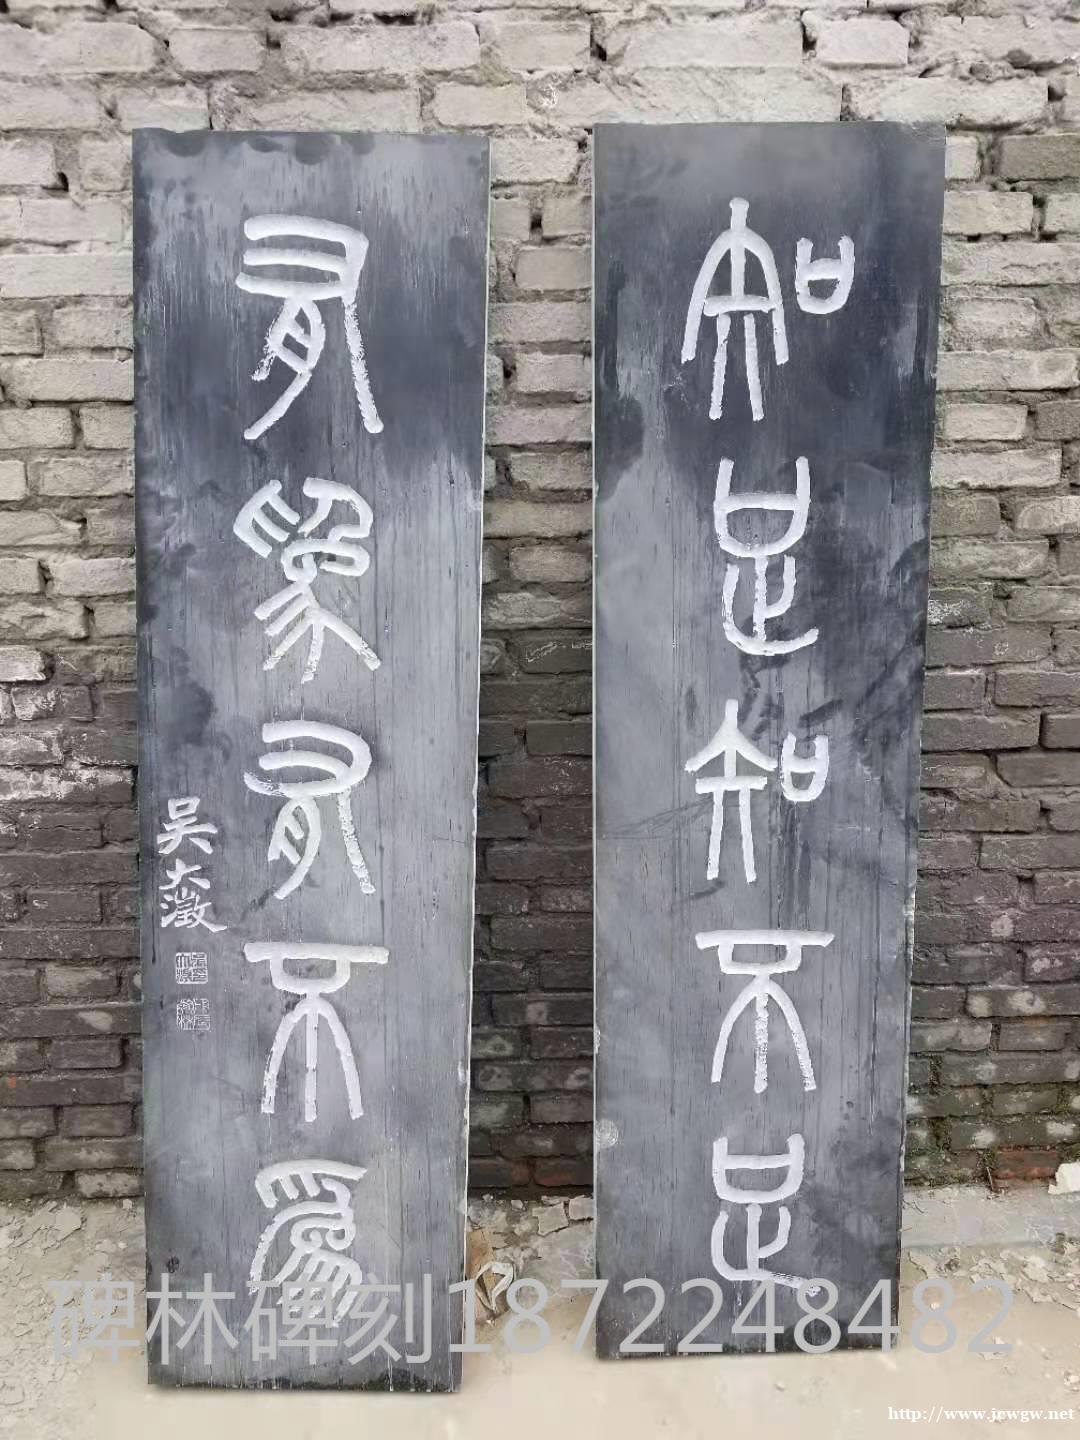 知足知不足
有爲有不爲
吴大澂
碑林碑刻18722248482
http://www.jcwgw.net